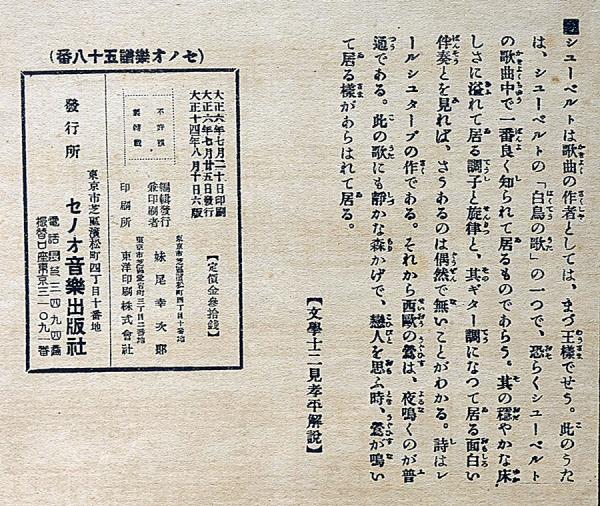 シューベルトは歌曲の作者としては、まづ王樣でせう。此のうた
は、シューベルトの「白鳥の歌」の一つで、恐らくシューベルト
の歌曲中で一番良く知られて居るものであらう。其の穩やかな床
しさに溢れて居る調子と旋律と、其ギター調になつて居る面白い
伴奏とを見れば、さうあるのは偶然で無いことがわかる。詩はレ
ールシュタープの作である。それから西歐の鶯は、夜鳴くのが普
通である。此の歌にも靜かな森かげで、戀人を思ふ時、鶯が鳴い
て居る樣があらはれて居る。
【文學士二見孝平解說】
(セノオ樂譜五十八番)
大正六年七月二十日印刷
大正六年七月廿五日發行
大正十四年八月十日六版
【定價金參拾錢】
不許複製
東京市芝區濱松町四丁目十番地
編輯發行兼印刷者 妹尾幸次郞
東京市芝區愛宕町三丁目二番地
印刷所 東洋印刷株式會社
發行所
東京市芝區濱松町四丁目十番地
セノオ音樂出版社
電話長芝三四九四番
振替口座東京三一〇九一番